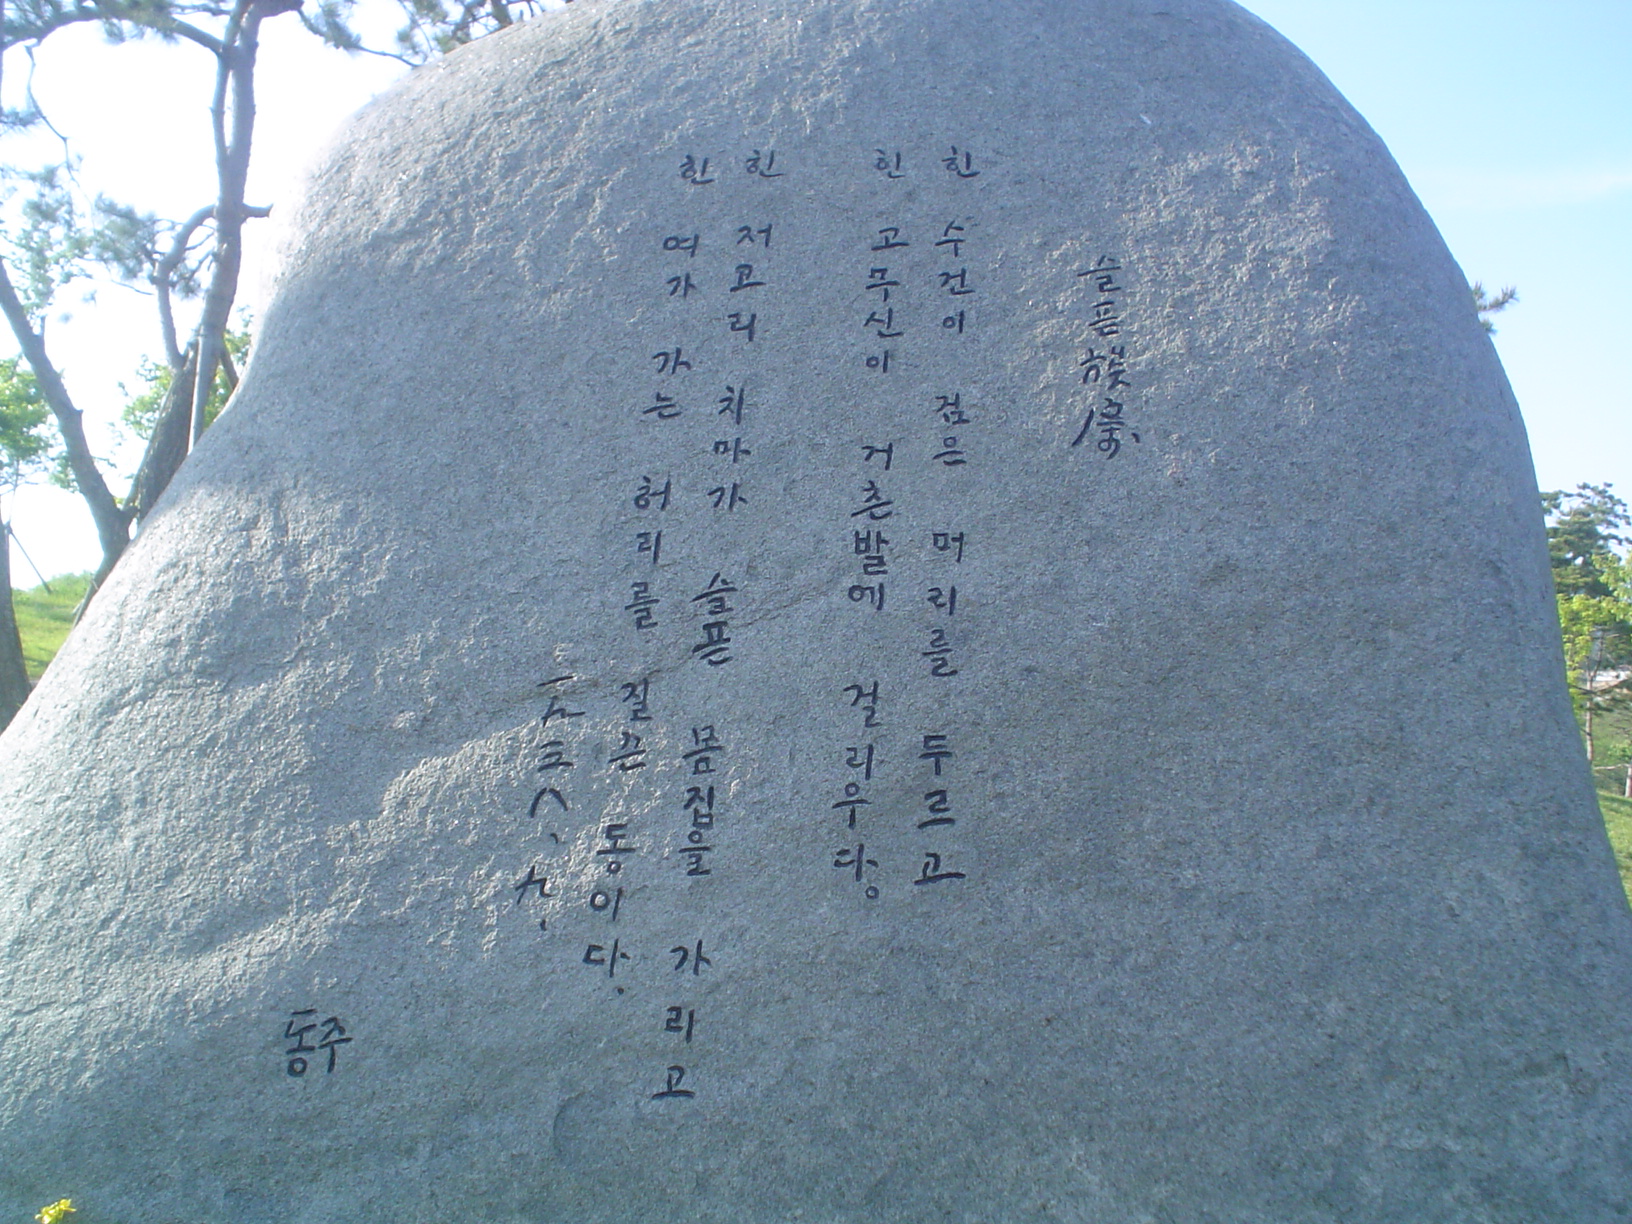 슬픈族屬
힌 수건이 검은 머리를 두르고
힌 고무신이 거츤발에 걸리우다。
힌 저고리 치마가 슬픈 몸집을 가리고
힌 여가 가는 허리를 질끈 동이다.
一九三八、九、
동주